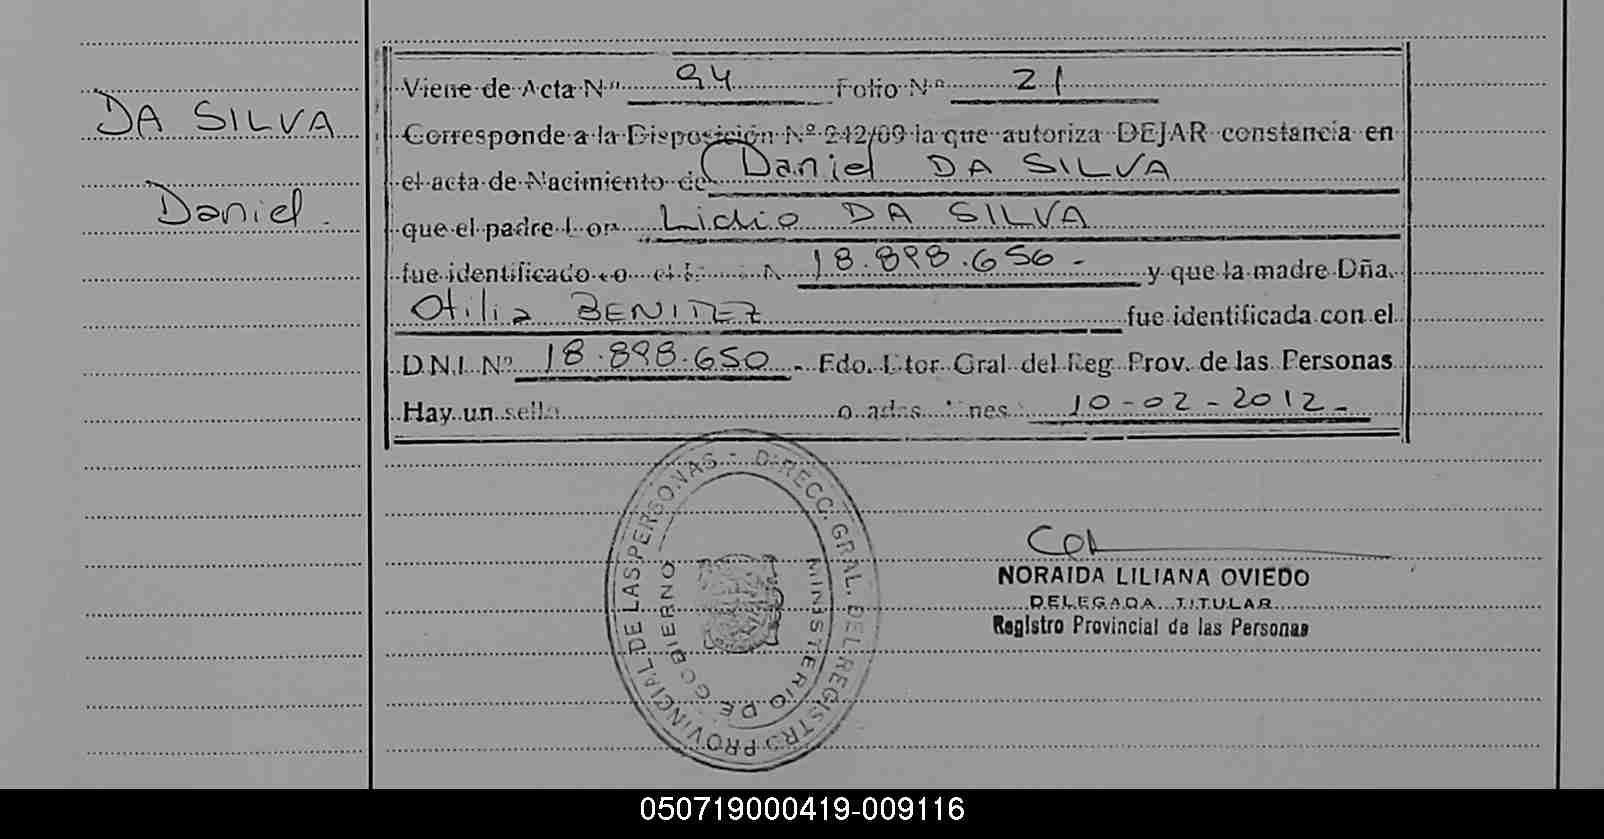 DA SILVA
Daniel.
Viene de Acta Nº 94 Folio Nº 21
Corresponde a la Disposición Nº 242/09 la que autoriza DEJAR constancia en
el acta de Nacimiento de Daniel DA SILVA
que el padre Don Lidio DA SILVA
fue identificado co el N 18.898.656.- y que la madre Dña.
Otilia BENITEZ fue identificada con el
D.N.I. Nº 18.898.650.- Fdo. Dtor Gral del Reg Prov. de las Personas
Hay un sello 10-02-2012.-
DIRECC. GRAL. DEL REGISTRO PROVINCIAL DE LAS PERSONAS -
MINISTERIO DE GOBIERNO
NORAIDA LILIANA OVIEDO
DELEGADA TITULAR
Registro Provincial de las Personas
050719000419-009116